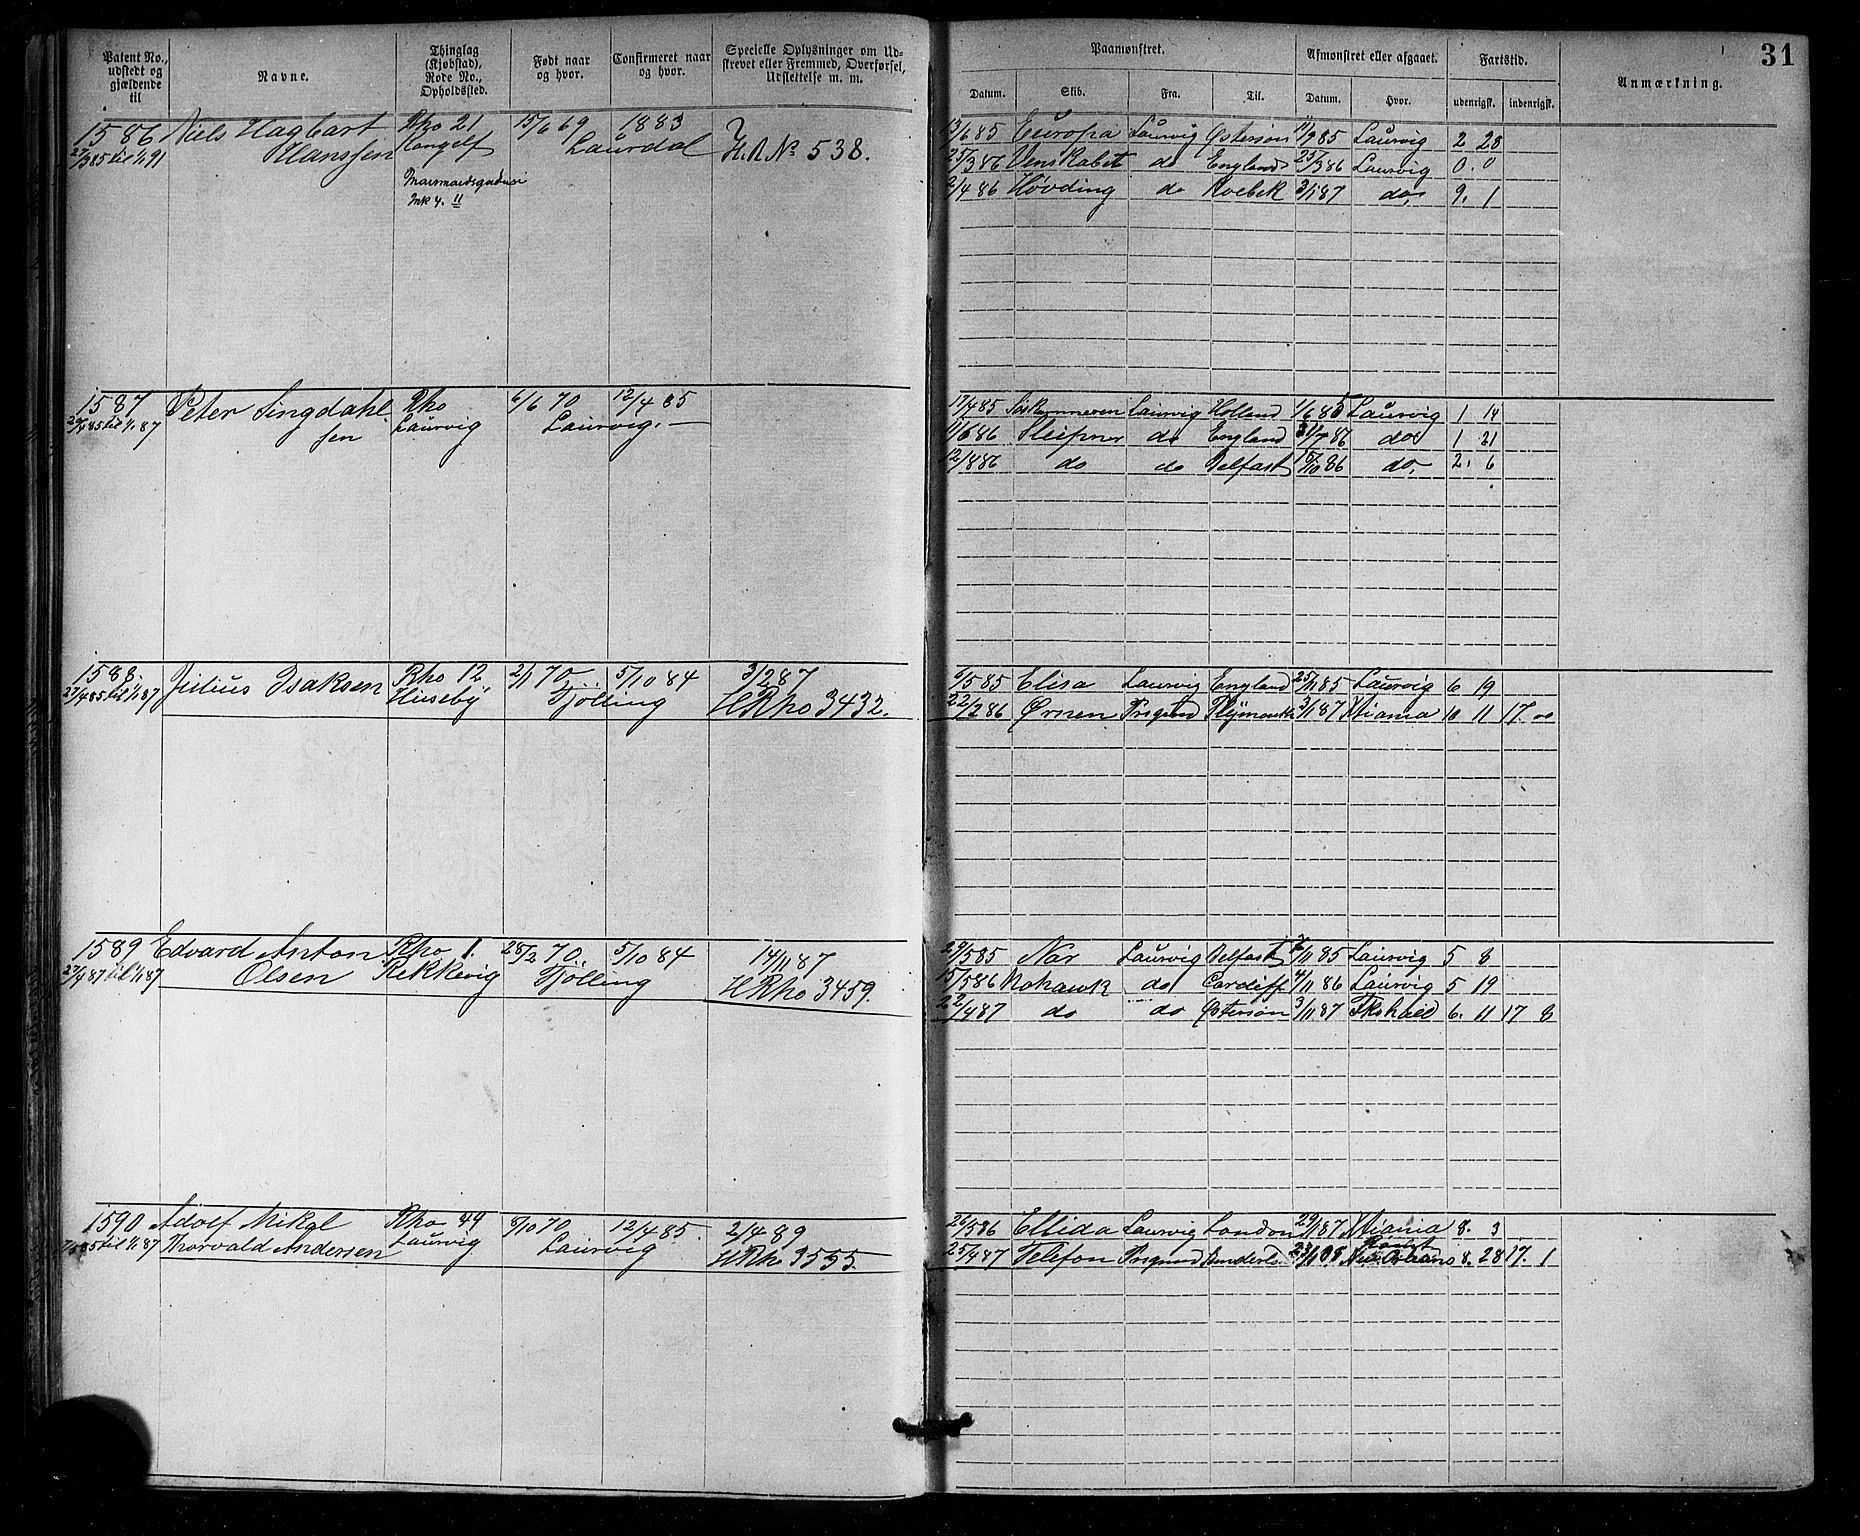 31
Patent No., udstedt og gjældende til
Navne.
Thinglag (Kjøbstad), Rode No., Opholdssted.
Født naar og hvor.
Confirmeret naar og hvor.
Specielle Oplysninger om Udskrevet eller Fremmed, Overførsel, Udslettelse m. m.
Paamønstret.
Afmønstret eller afgaaet.
Fartstid.
Anmærkning.
Datum. Skib. Fra. Til. Datum. Hvor. udenrigsk. indenrigsk.
1586 Niels Hagbart Rho 21 15/6 69 1883
27/3 85 til 1/1 91 Hanssen Laurdal H.R.No 538.
13/6 85 Europa Laurvig Østersøn 11/9 85 Laurvig 2 28
25/3 86 Venskabet do England 25/3 86 Laurvig 0. 0
2/4 86 Høvding do 3/1 87 do, 9. 1
1587 Peter Singdahl- Rho 6/6 70 12/4 85
til 1/1 87 sen Laurvig Laurvig. —
17/4 85 Laurvig Holland 1/6 85 Laurvig 1 14
11/6 86 Sleipner do England 31/7 86 do 1 21
12/8 86 do do Belfast 15/10 86 do, 2. 6
1588. Julius Isaksen Rho 12 2/1 70. 5/10 84 3/2 87
27/4 85 til 1/1 87 Huseby Tjölling HRho 3432.
6/5 85 Elisa Laurvig England 25/11 85 Laurvig 6 19
22/2 86 Ørnen Prsgrund Plymouth 3/1 87 Xtiania 10 11 17. 00
1589 Edvard Anton Rho 1. 28/2 70. 5/10 84 14/11 87
27/4 87 til 1/1 87 Olsen Rekkevig Tjölling HRho 3459.
29/5 85 Nor Laurvig Belfast 7/11 85 Laurvig 5 8
15/5 86 Mohawk do Cardiff 4/11 86 Laurvig 5 19
22/4 87 do do Østersøn 3/11 87 Fkshald 6. 11 17 8
1590 Adolf Mikal Rho 44 8/10 70 12/4 85. 2/4 89
7/5 85 til 1/1 87 Thorvald Andersen Laurvig Laurvig HRho 3555.
26/5 86 Ellida Laurvig London 29/1 87 Xtiania 8. 3
25/4 87 Telefon Prsgrund New Orleans 8. 28 17. 1